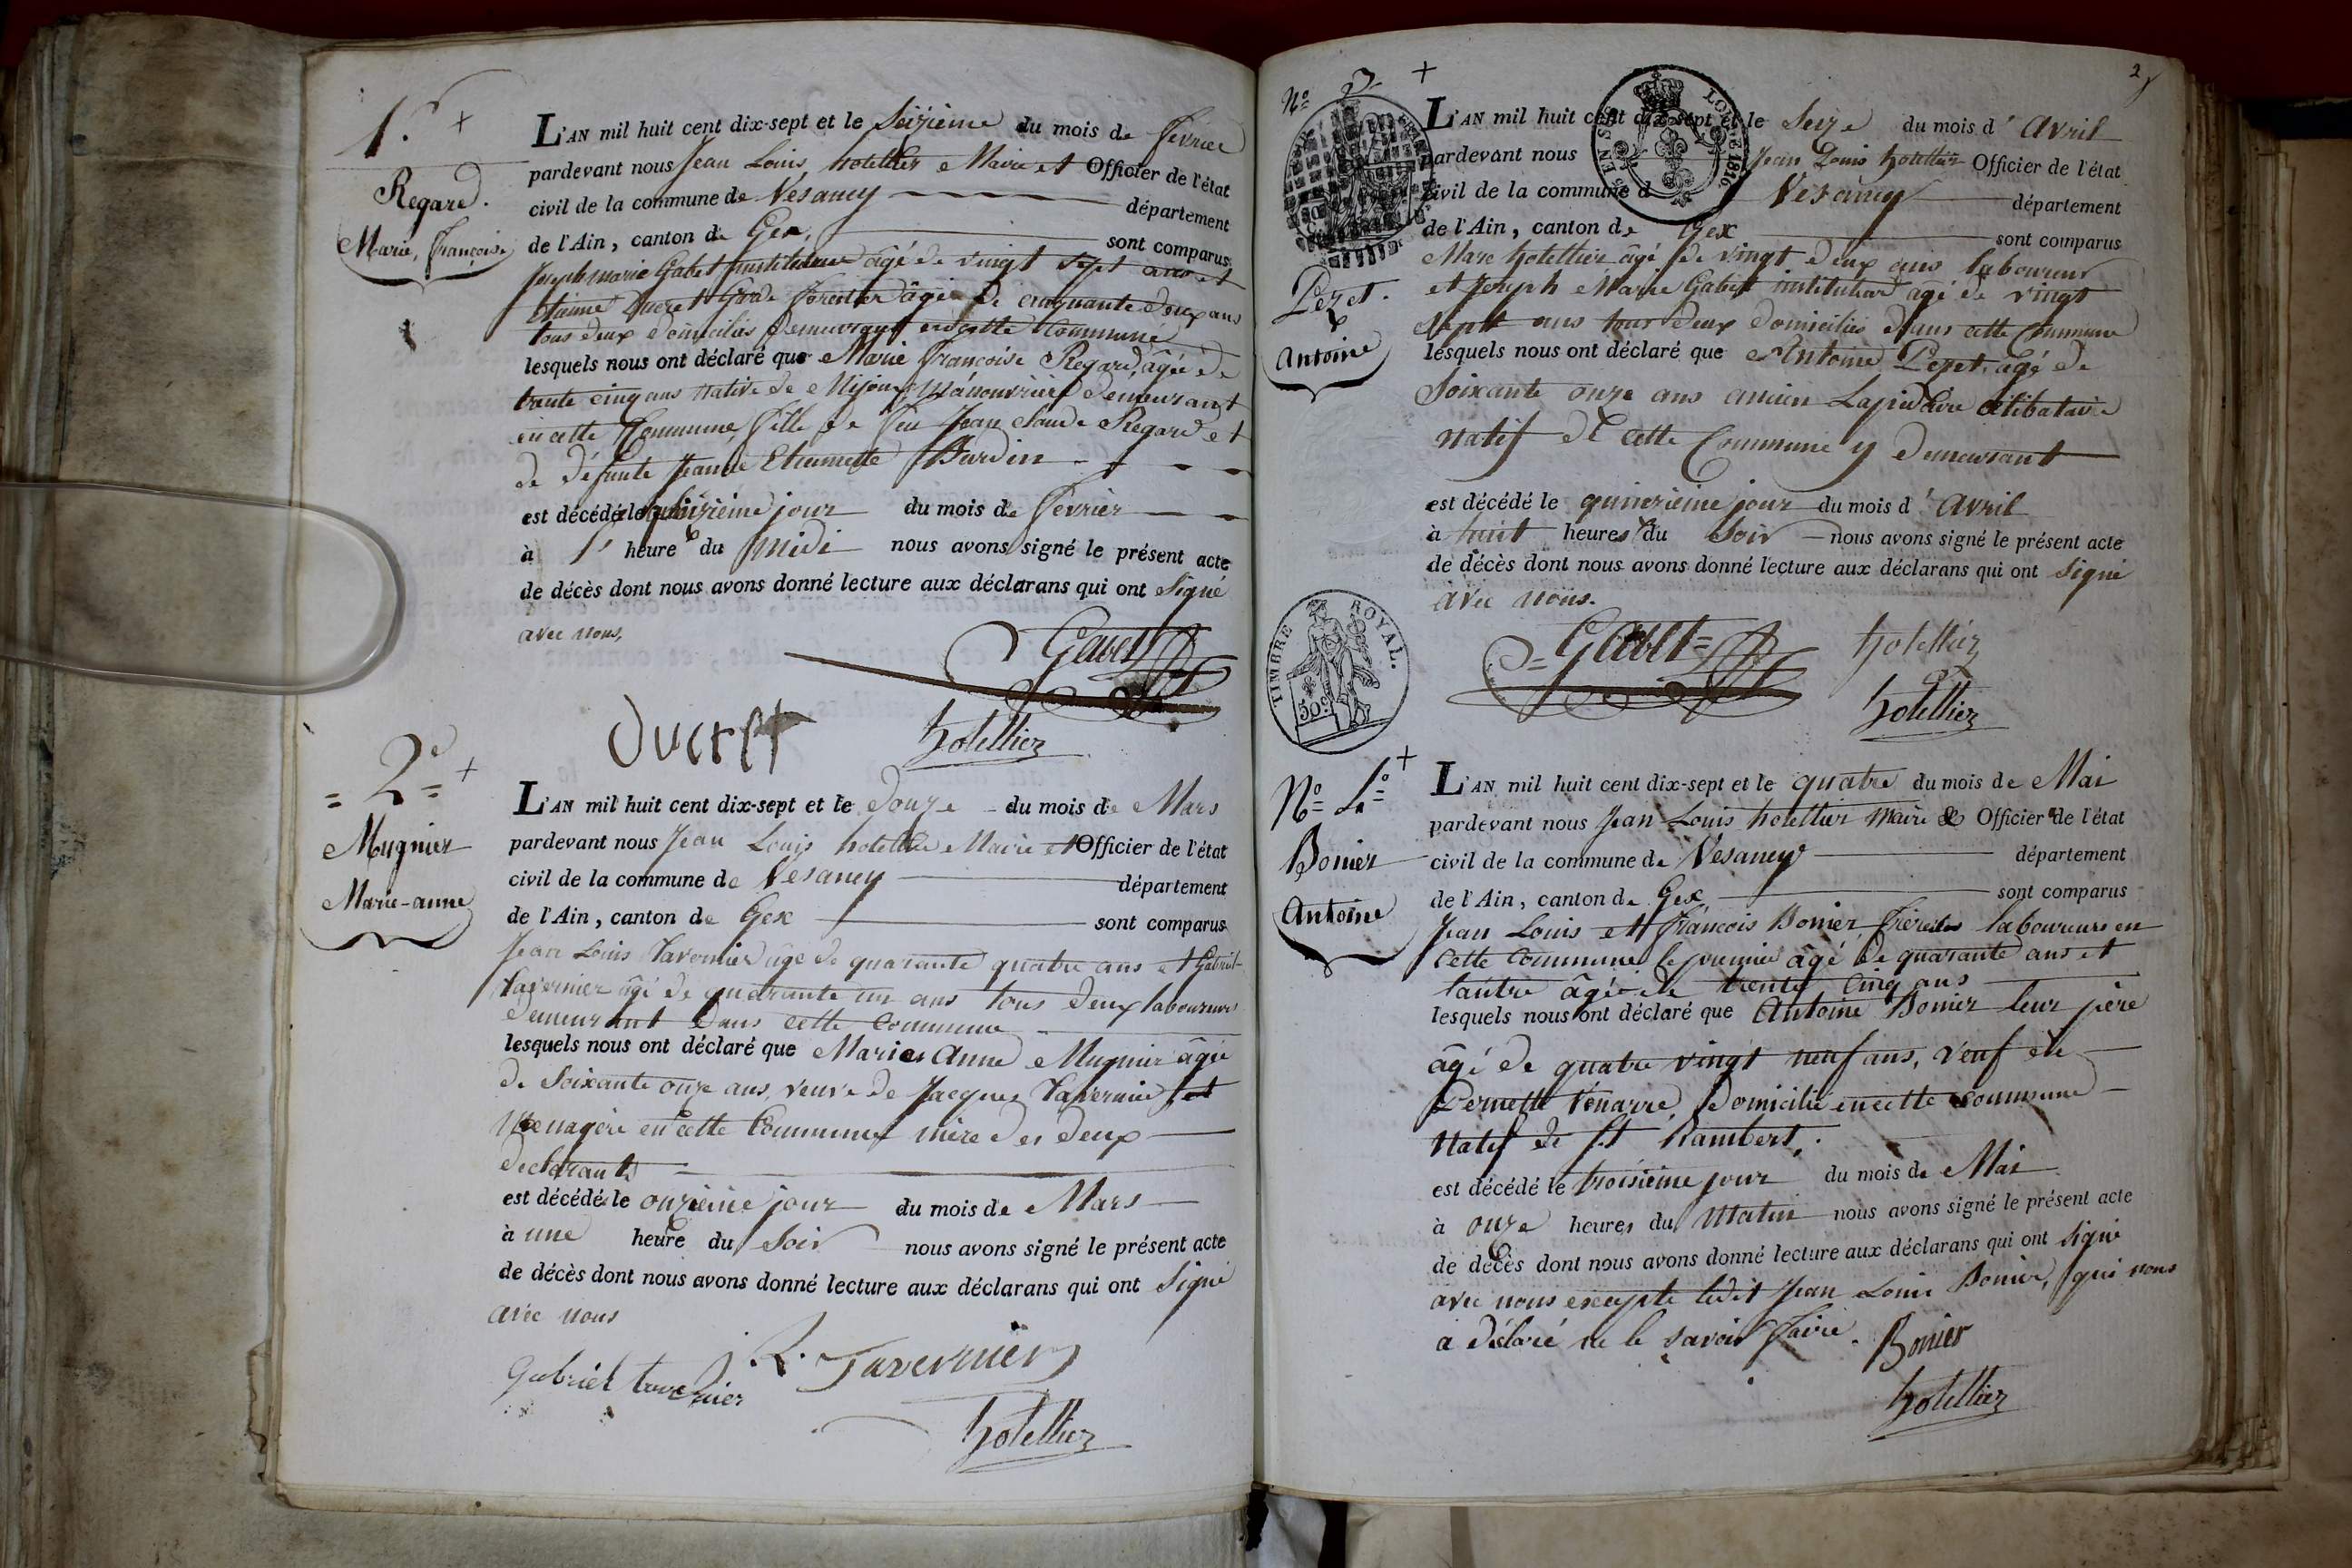 1.° +
Regard.
Marie, Françoise
L'AN mil huit cent dix-sept et le Seizième du mois de Février
pardevant nous Jean Louis hotellier Maire et Officier de l'état
civil de la commune de Vesancy département
de l'Ain, canton de Gex, sont comparus
Joseph marie Gabet instituteur âgé de vingt sept ans et
Etienne Ducret Garde forestier âgé de cinquante deux ans
tous deux domiciliés demeurant en cette Commune
lesquels nous ont déclaré que Marie Françoise Regard, âgée de
trente cinq ans native de Mijoux, demeurant
en cette Commune, fille de feu Jean Claude Regard et
de défunte Jeanne Etiennette Burdin
est décédée le jour du mois de Février
à 1' heure du midi nous avons signé le présent acte
de décès dont nous avons donné lecture aux déclarans qui ont signé
avec nous,
Gabet
Ducret hotellier
= 2e = +
Mugnier
Marie-anne
L'AN mil huit cent dix-sept et le douze du mois de Mars
pardevant nous Jean Louis hotellier Maire et Officier de l'état
civil de la commune de Vesancy département
de l'Ain, canton de Gex sont comparus
Jean Louis Tavernier âgé de quarante quatre ans et Gabriel
Tavernier âgé de quarante un ans tous deux laboureurs
demeurant dans cette commune
lesquels nous ont déclaré que Marie Anne Mugnier âgée
de Soixante onze ans, veuve de Jacques Tavernier et
Menagère en cette Commune mère des deux
declarants
est décédée le onzième jour du mois de Mars
à une heure du Soir nous avons signé le présent acte
de décès dont nous avons donné lecture aux déclarans qui ont signé
avec nous
Gabriel tavernier J. L. Tavernier
hotellier
2
N° 3 +
LOUIS 1816.
Pezet.
Antoine
L'AN mil huit cent dix-sept et le Seize du mois d'Avril
pardevant nous Jean Louis hotellier Officier de l'état
civil de la commune d Vesancy département
de l'Ain, canton de Gex sont comparus
Marc hotellier âgé de vingt deux ans laboureur
et Joseph Marie Gabet instituteur agé de vingt
sept ans tous deux domiciliés dans cette Commune
lesquels nous ont déclaré que Antoine Pezet, âgé de
Soixante onze ans ancien Lapidaire célibataire
natif de cette Commune y demeurant
est décédé le quinzième jour du mois d'Avril
à huit heures du Soir nous avons signé le présent acte
de décès dont nous avons donné lecture aux déclarans qui ont signé
avec nous.
TIMBRE ROYAL.
50 c
Gabet hotellier
hotellier
N° 4° +
Bonier
Antoine
L'AN mil huit cent dix-sept et le quatre du mois de Mai
pardevant nous Jean Louis hotellier Maire & Officier de l'état
civil de la commune de Vesancy département
de l'Ain, canton de Gex, sont comparus
Jean Louis et François Bonier, frères laboureurs en
cette Commune le premier âgé de quarante ans et
l'autre âgé de trente cinq ans
lesquels nous ont déclaré que Antoine Bonier leur père
âgé de quatre vingt neuf ans, veuf de
Pernette domicilié en cette commune
natif de St Rambert.
est décédé le troisième jour du mois de Mai
à onze heures du Matin nous avons signé le présent acte
de décès dont nous avons donné lecture aux déclarans qui ont signé
avec nous excepté ledit Jean Louis Bonier, qui nous
a déclaré ne le savoir faire. Bonier
hotellier